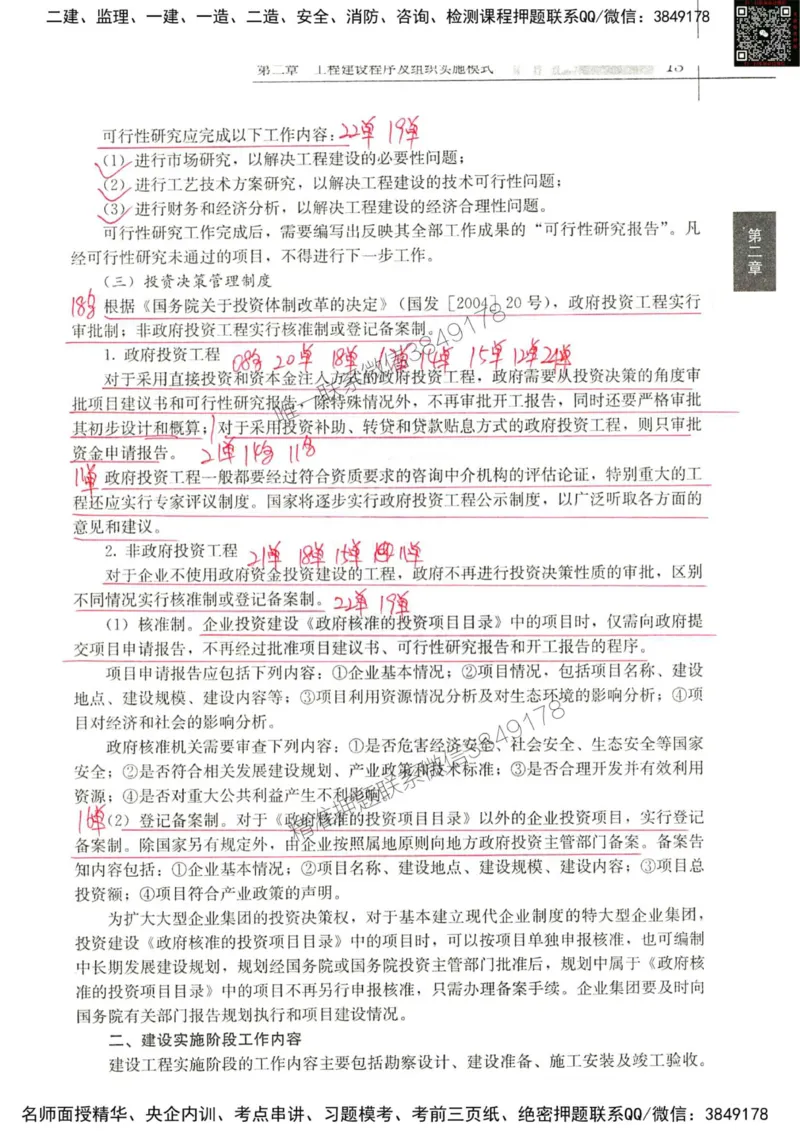 二建、监理、一建、一造、二造、安全、消防、咨询、检测课程押题联系QQ/微信：3849178
第二章 工程建设程序及组织实施模式 15
可行性研究应完成以下工作内容：22单 19单
（1）进行市场研究，以解决工程建设的必要性问题；
（2）进行工艺技术方案研究，以解决工程建设的技术可行性问题；
（3）进行财务和经济分析，以解决工程建设的经济合理性问题。
可行性研究工作完成后，需要编写出反映其全部工作成果的“可行性研究报告”。凡
经可行性研究未通过的项目，不得进行下一步工作。
第二章
（三）投资决策管理制度
18多 根据《国务院关于投资体制改革的决定》（国发［2004］20 号），政府投资工程实行
审批制；非政府投资工程实行核准制或登记备案制。
1. 政府投资工程 08多 20单 18单 14单 15单 12单 21单
对于采用直接投资和资本金注入方式的政府投资工程，政府需要从投资决策的角度审
批项目建议书和可行性研究报告，除特殊情况外，不再审批开工报告，同时还要严格审批
其初步设计和概算；对于采用投资补助、转贷和贷款贴息方式的政府投资工程，则只审批
资金申请报告。 21单 11多
11单 政府投资工程一般都要经过符合资质要求的咨询中介机构的评估论证，特别重大的工
程还应实行专家评议制度。国家将逐步实行政府投资工程公示制度，以广泛听取各方面的
意见和建议。
2. 非政府投资工程 21单 18单 15单 11单
对于企业不使用政府资金投资建设的工程，政府不再进行投资决策性质的审批，区别
不同情况实行核准制或登记备案制。 22单 19单
（1）核准制。企业投资建设《政府核准的投资项目目录》中的项目时，仅需向政府提
交项目申请报告，不再经过批准项目建议书、可行性研究报告和开工报告的程序。
项目申请报告应包括下列内容：①企业基本情况；②项目情况，包括项目名称、建设
地点、建设规模、建设内容等；③项目利用资源情况分析及对生态环境的影响分析；④项
目对经济和社会的影响分析。
政府核准机关需要审查下列内容：①是否危害经济安全、社会安全、生态安全等国家
安全；②是否符合相关发展建设规划、产业政策和技术标准；③是否合理开发并有效利用
资源；④是否对重大公共利益产生不利影响。
16单 （2）登记备案制。对于《政府核准的投资项目目录》以外的企业投资项目，实行登记
备案制。除国家另有规定外，由企业按照属地原则向地方政府投资主管部门备案。备案告
知内容包括：①企业基本情况；②项目名称、建设地点、建设规模、建设内容；③项目总
投资额；④项目符合产业政策的声明。
为扩大大型企业集团的投资决策权，对于基本建立现代企业制度的特大型企业集团，
投资建设《政府核准的投资项目目录》中的项目时，可以按项目单独申报核准，也可编制
中长期发展建设规划，规划经国务院或国务院投资主管部门批准后，规划中属于《政府核
准的投资项目目录》中的项目不再另行申报核准，只需办理备案手续。企业集团要及时向
国务院有关部门报告规划执行和项目建设情况。
二、建设实施阶段工作内容
建设工程实施阶段的工作内容主要包括勘察设计、建设准备、施工安装及竣工验收。
唯一联系微信3849178
精准押题联系微信3849178
名师面授精华、央企内训、考点串讲、习题模考、考前三页纸、绝密押题联系QQ/微信：3849178